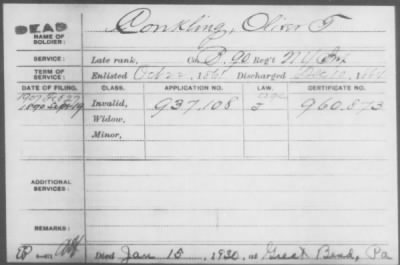 DEAD
NAME OF SOLDIER:
Conkling, Oliver T
SERVICE:
Late rank, Co. B, 90 Reg't N.Y. Inf
TERM OF SERVICE:
Enlisted Oct 22, 1861 Discharged Dec 10, 1864
DATE OF FILING. CLASS. APPLICATION NO. LAW. CERTIFICATE NO.
1907 Feb 27
1890 Sept 19 Invalid, 937.108 960.873
Widow,
Minor,
ADDITIONAL SERVICES:
REMARKS:
Died Jan 15, 1930, at Great Bend, Pa